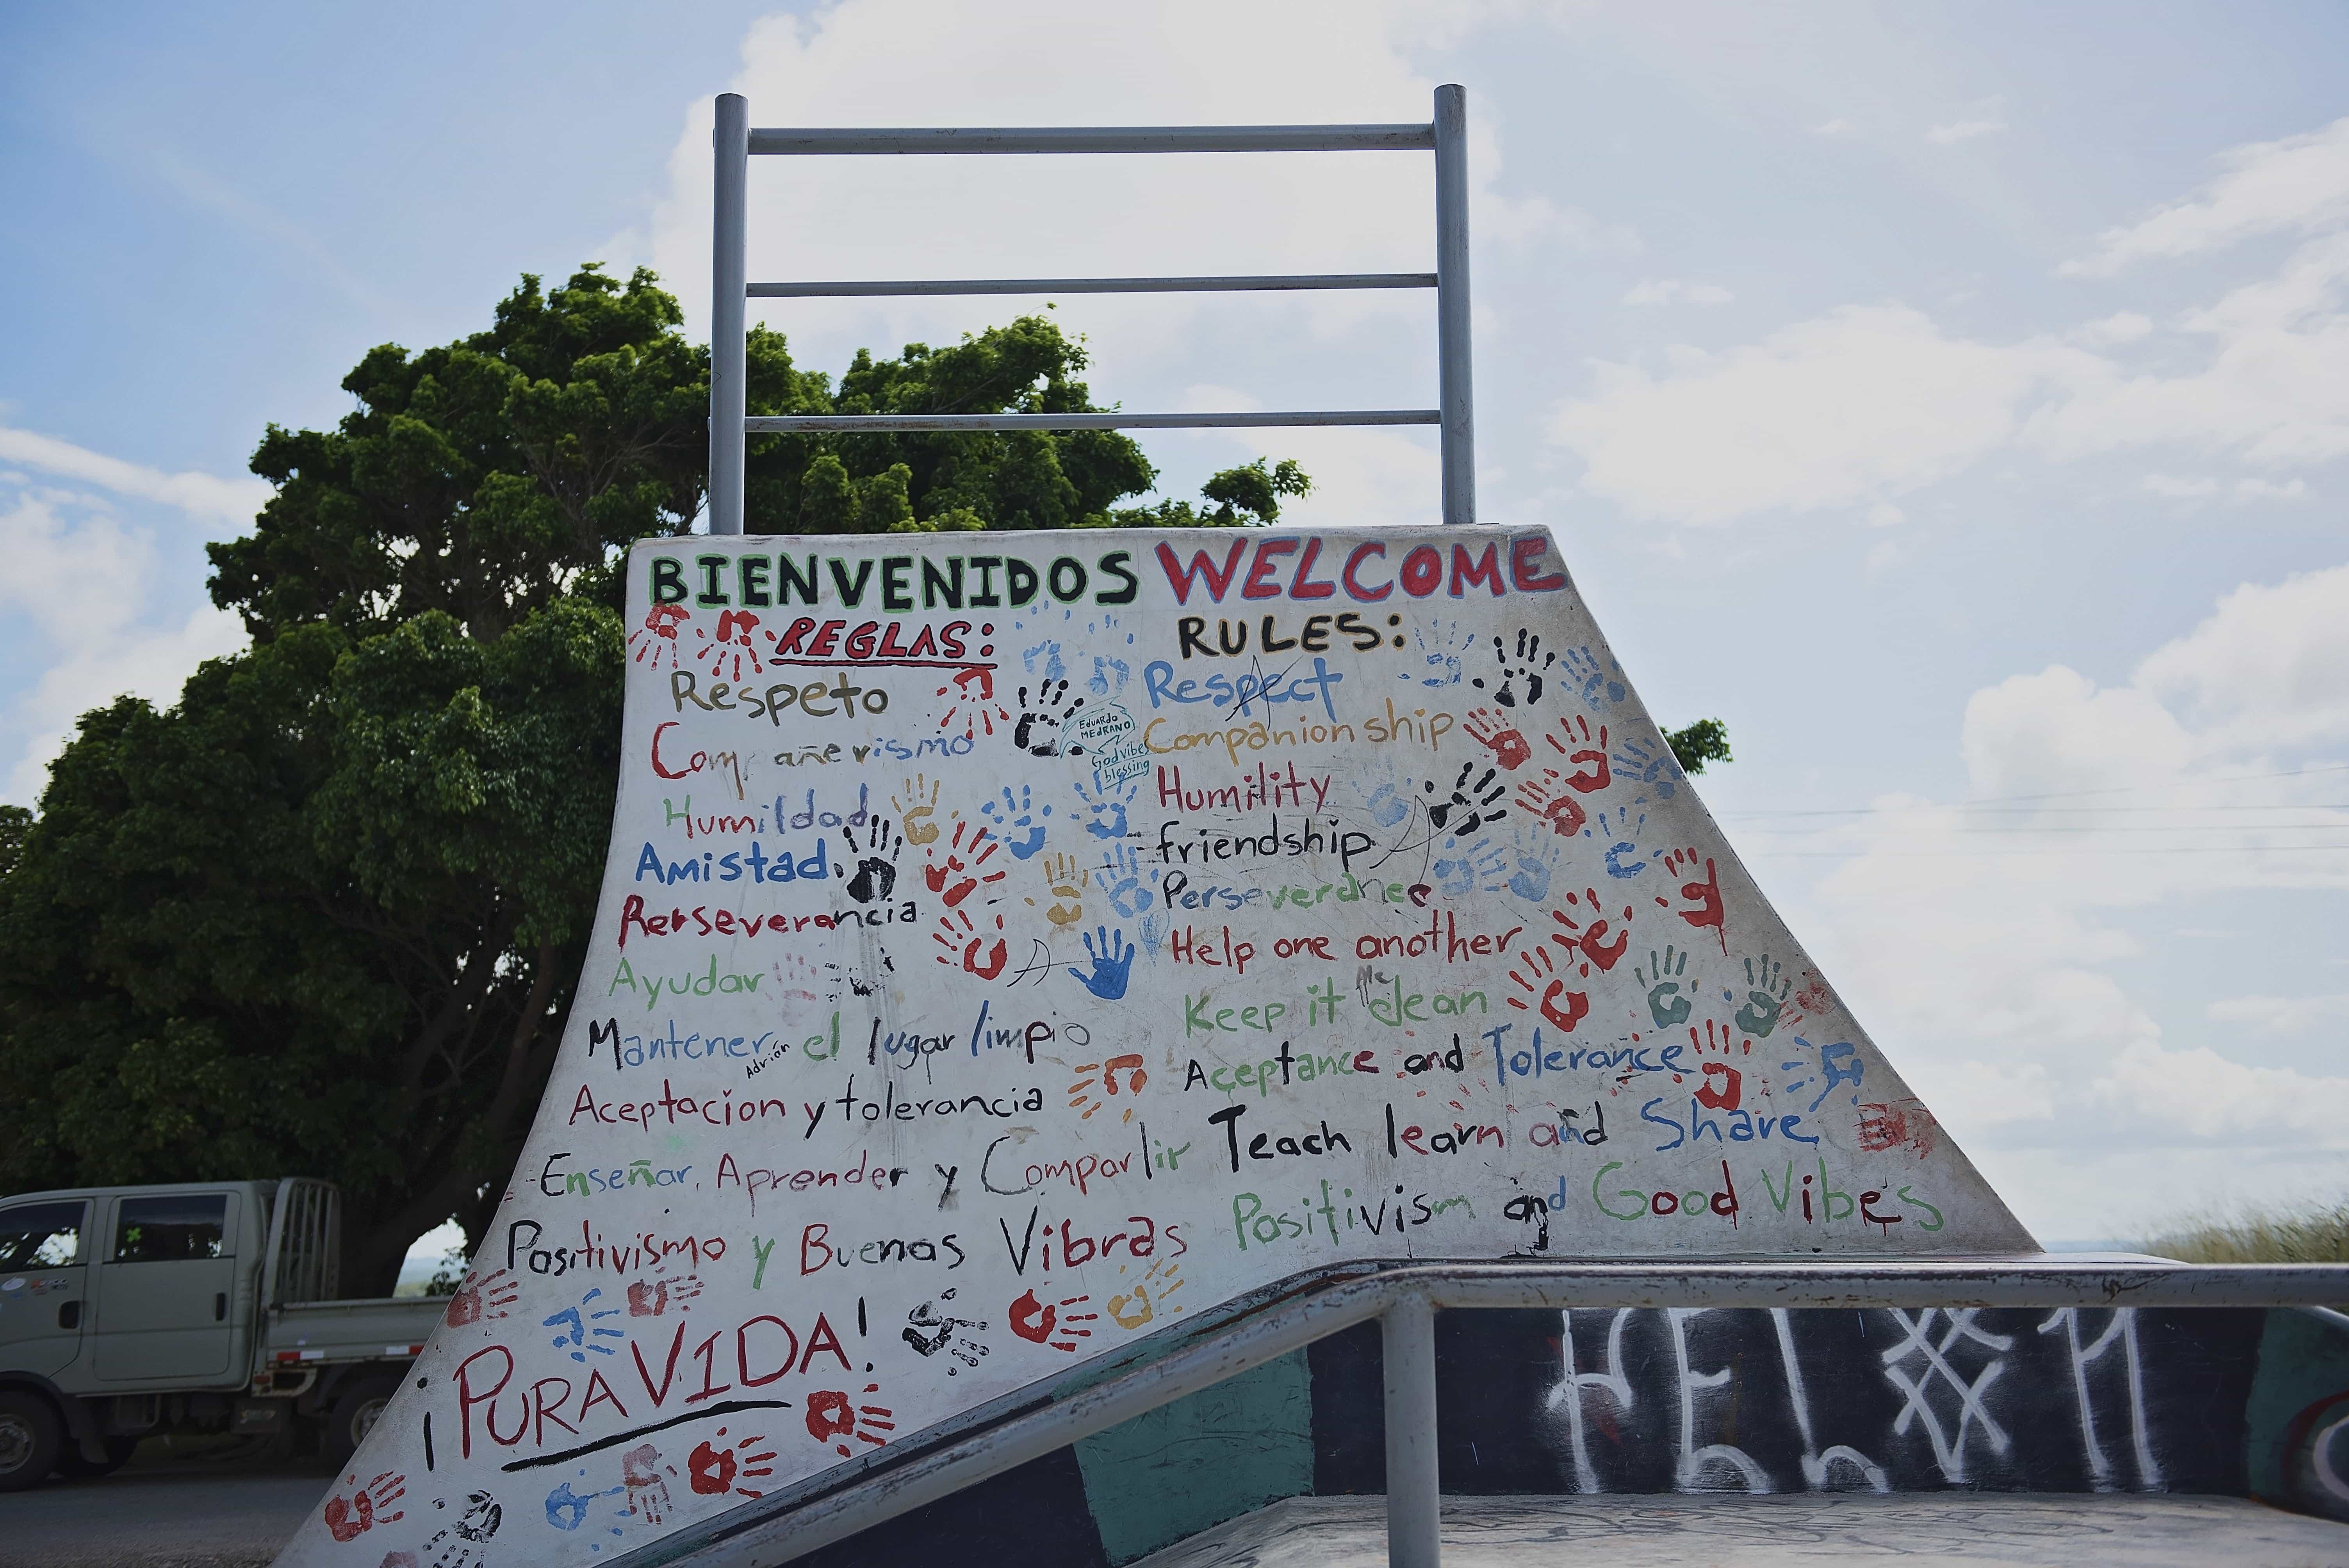 BIENVENIDOS
REGLAS:
Respeto
Compañerismo
Humildad
Amistad
Perseverancia
Ayudar
Mantener el lugar limpio
Adrián
Aceptacion y tolerancia
Enseñar, Aprender y Compartir
Positivismo y Buenas Vibras
¡PURA VIDA!
EDUARDO
MEDRANO
God vibes
blessing
WELCOME
RULES:
Respect
Companionship
Humility
friendship
Perseverance
Help one another
Keep it clean
Aceptance and Tolerance
Teach learn and Share
Positivism and Good Vibes